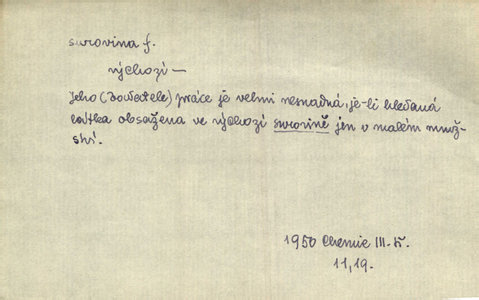 surovina f.
výchozí —
jeho (badatele) práce je velmi nesnadná, je-li hledaná
látka obsažena ve výchozí surovině jen v malém množ-
ství.
1950 Chemie III. K.
11, 19.